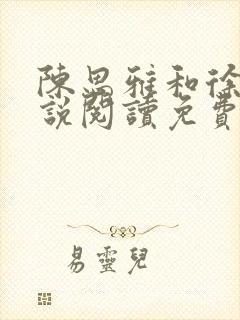 陳恩雅和徐
說閱讀免費
易靈兒